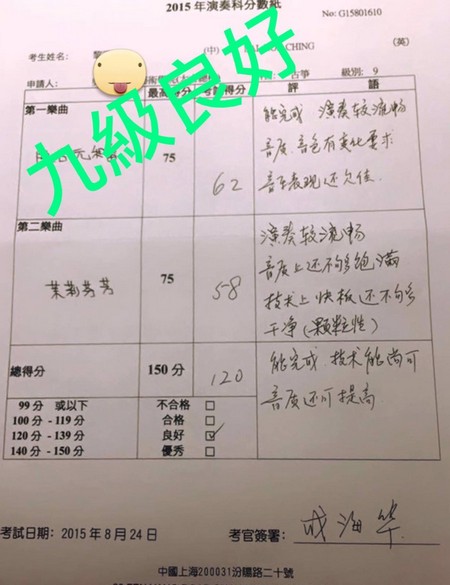 2015年演奏科分數紙
No: G15801610
考生姓名: (中) CHING (英)
申請人: 古箏 級別: 9
九級良好
最高得分 考試得分 評 語
第一樂曲
75
62
能完成 演奏较流畅
音质、音色有变化要求
音乐表现还欠佳.
第二樂曲
茉莉芬芳
75
58
演奏较流畅
音质上还不够饱满
技术上快板还不够
干净(颗粒性)
總得分 150分
120
能完成.技术能尚可
音质还可提高
99分 或以下 不合格 □
100分 - 119分 合格 □
120分 - 139分 良好 ☑
140分 - 150分 優秀 □
考試日期: 2015年8月24日
考官簽署: 成海华
中國上海200031汾陽路二十號